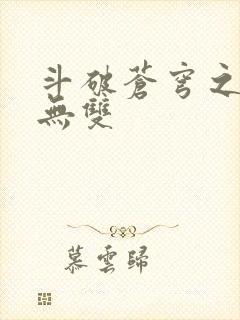 斗破蒼穹之
無雙
慕雲歸